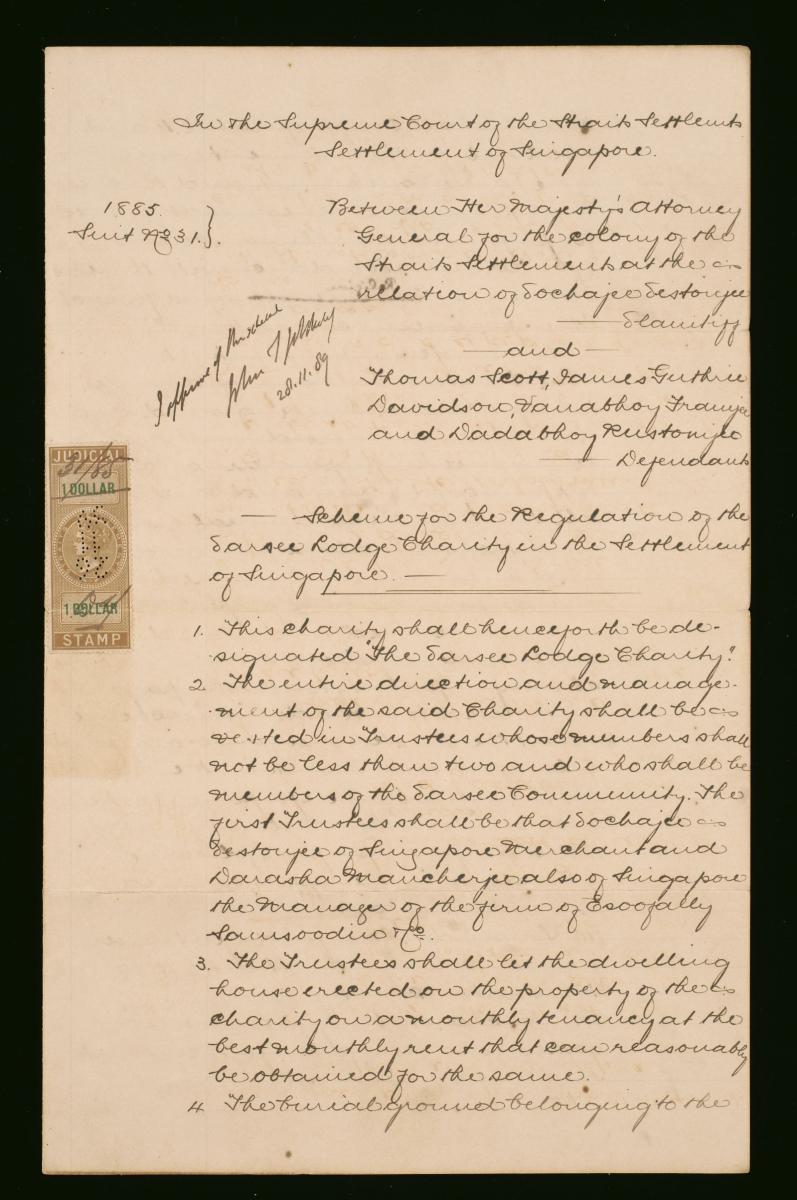 In the Supreme Court of the Straits Settlemts
Settlement of Singapore.
1885.
Suit No 31.
Between Her Majesty's Attorney
General for the colony of the
Straits Settlements at the
rellation of Pochajee Pestonjee
Plaintiff
and
Thomas Scott, James Guthrie
Davidson, Vanabhoy Framjee
and Dadabhoy Rustomjee
Defendants
I approve of this scheme
John
28.11.89
JUDICIAL
31/85
1 DOLLAR
1 DOLLAR
STAMP
Scheme for the Regulation of the
Parsee Lodge Charity in the Settlement
of Singapore.
1. This charity shall henceforth be de-
signated "The Parsee Lodge Charity".
2. The entire direction and manage-
ment of the said Charity shall be
vested in Trustees whose members shall
not be less than two and who shall be
members of the Parsee Community. The
first Trustees shall be that Pochajee
Pestonjee of Singapore Merchant and
Darasha Mancherjee also of Singapore
the Manager of the firm of Esoofally
Samsoodin & Co.
3. The Trustees shall let the dwelling
house erected on the property of the
charity on a monthly tenancy at the
best monthly rent that can reasonably
be obtained for the same.
4 The burial ground belonging to the